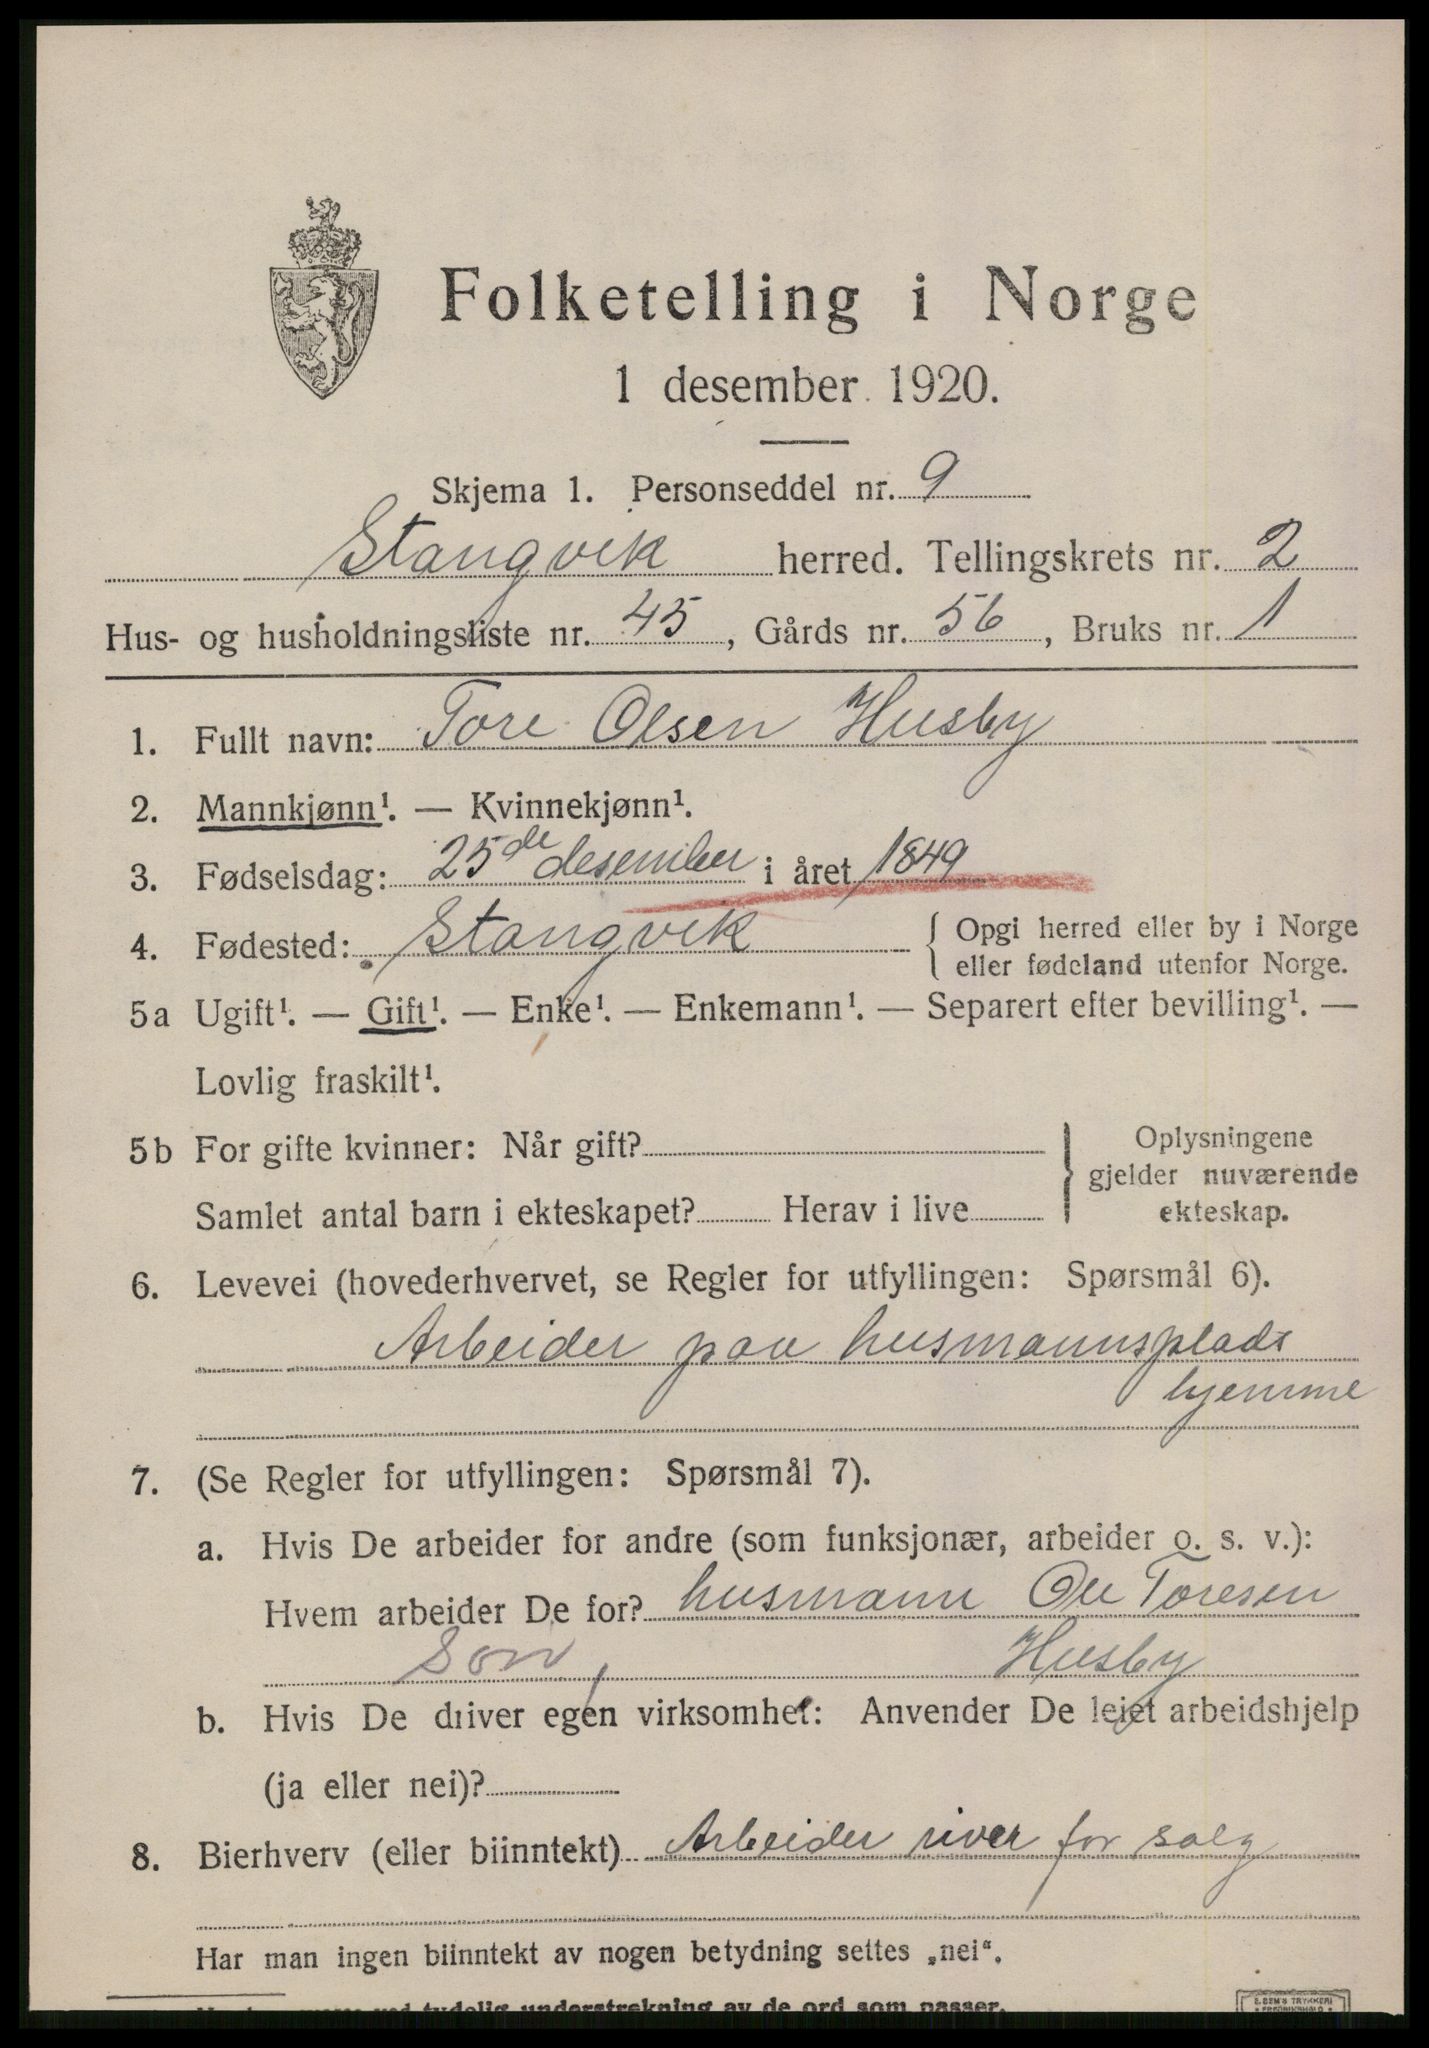 Folketelling i Norge
1 desember 1920.
Skjema 1. Personseddel nr. 9
Stangvik herred. Tellingskrets nr. 2
Hus- og husholdningsliste nr. 45, Gårds nr. 56, Bruks nr. 1
1. Fullt navn: Tore Olsen Husby
2. Mannkjønn¹. — Kvinnekjønn¹.
3. Fødselsdag: 25de desember i året 1849
4. Fødested: Stangvik { Opgi herred eller by i Norge
eller fødeland utenfor Norge.
5a Ugift¹. — Gift¹. — Enke¹. — Enkemann¹. — Separert efter bevilling¹. —
Lovlig fraskilt¹.
5b For gifte kvinner: Når gift? } Oplysningene
gjelder nuværende
Samlet antal barn i ekteskapet? Herav i live ekteskap.
6. Levevei (hovederhvervet, se Regler for utfyllingen: Spørsmål 6).
Arbeider paa husmannsplads
hjemme
7. (Se Regler for utfyllingen: Spørsmål 7).
a. Hvis De arbeider for andre (som funksjonær, arbeider o. s. v.):
Hvem arbeider De for? husmann Ole Toresen
Søn, Husby
b. Hvis De driver egen virksomhet: Anvender De leiet arbeidshjelp
(ja eller nei)?
8. Bierhverv (eller biinntekt) Arbeider river for salg
Har man ingen biinntekt av nogen betydning settes „nei“.
ved tydelig understrekning av de ord som passer.
E. SEM'S TRYKKERI
FREDRIKSHALD